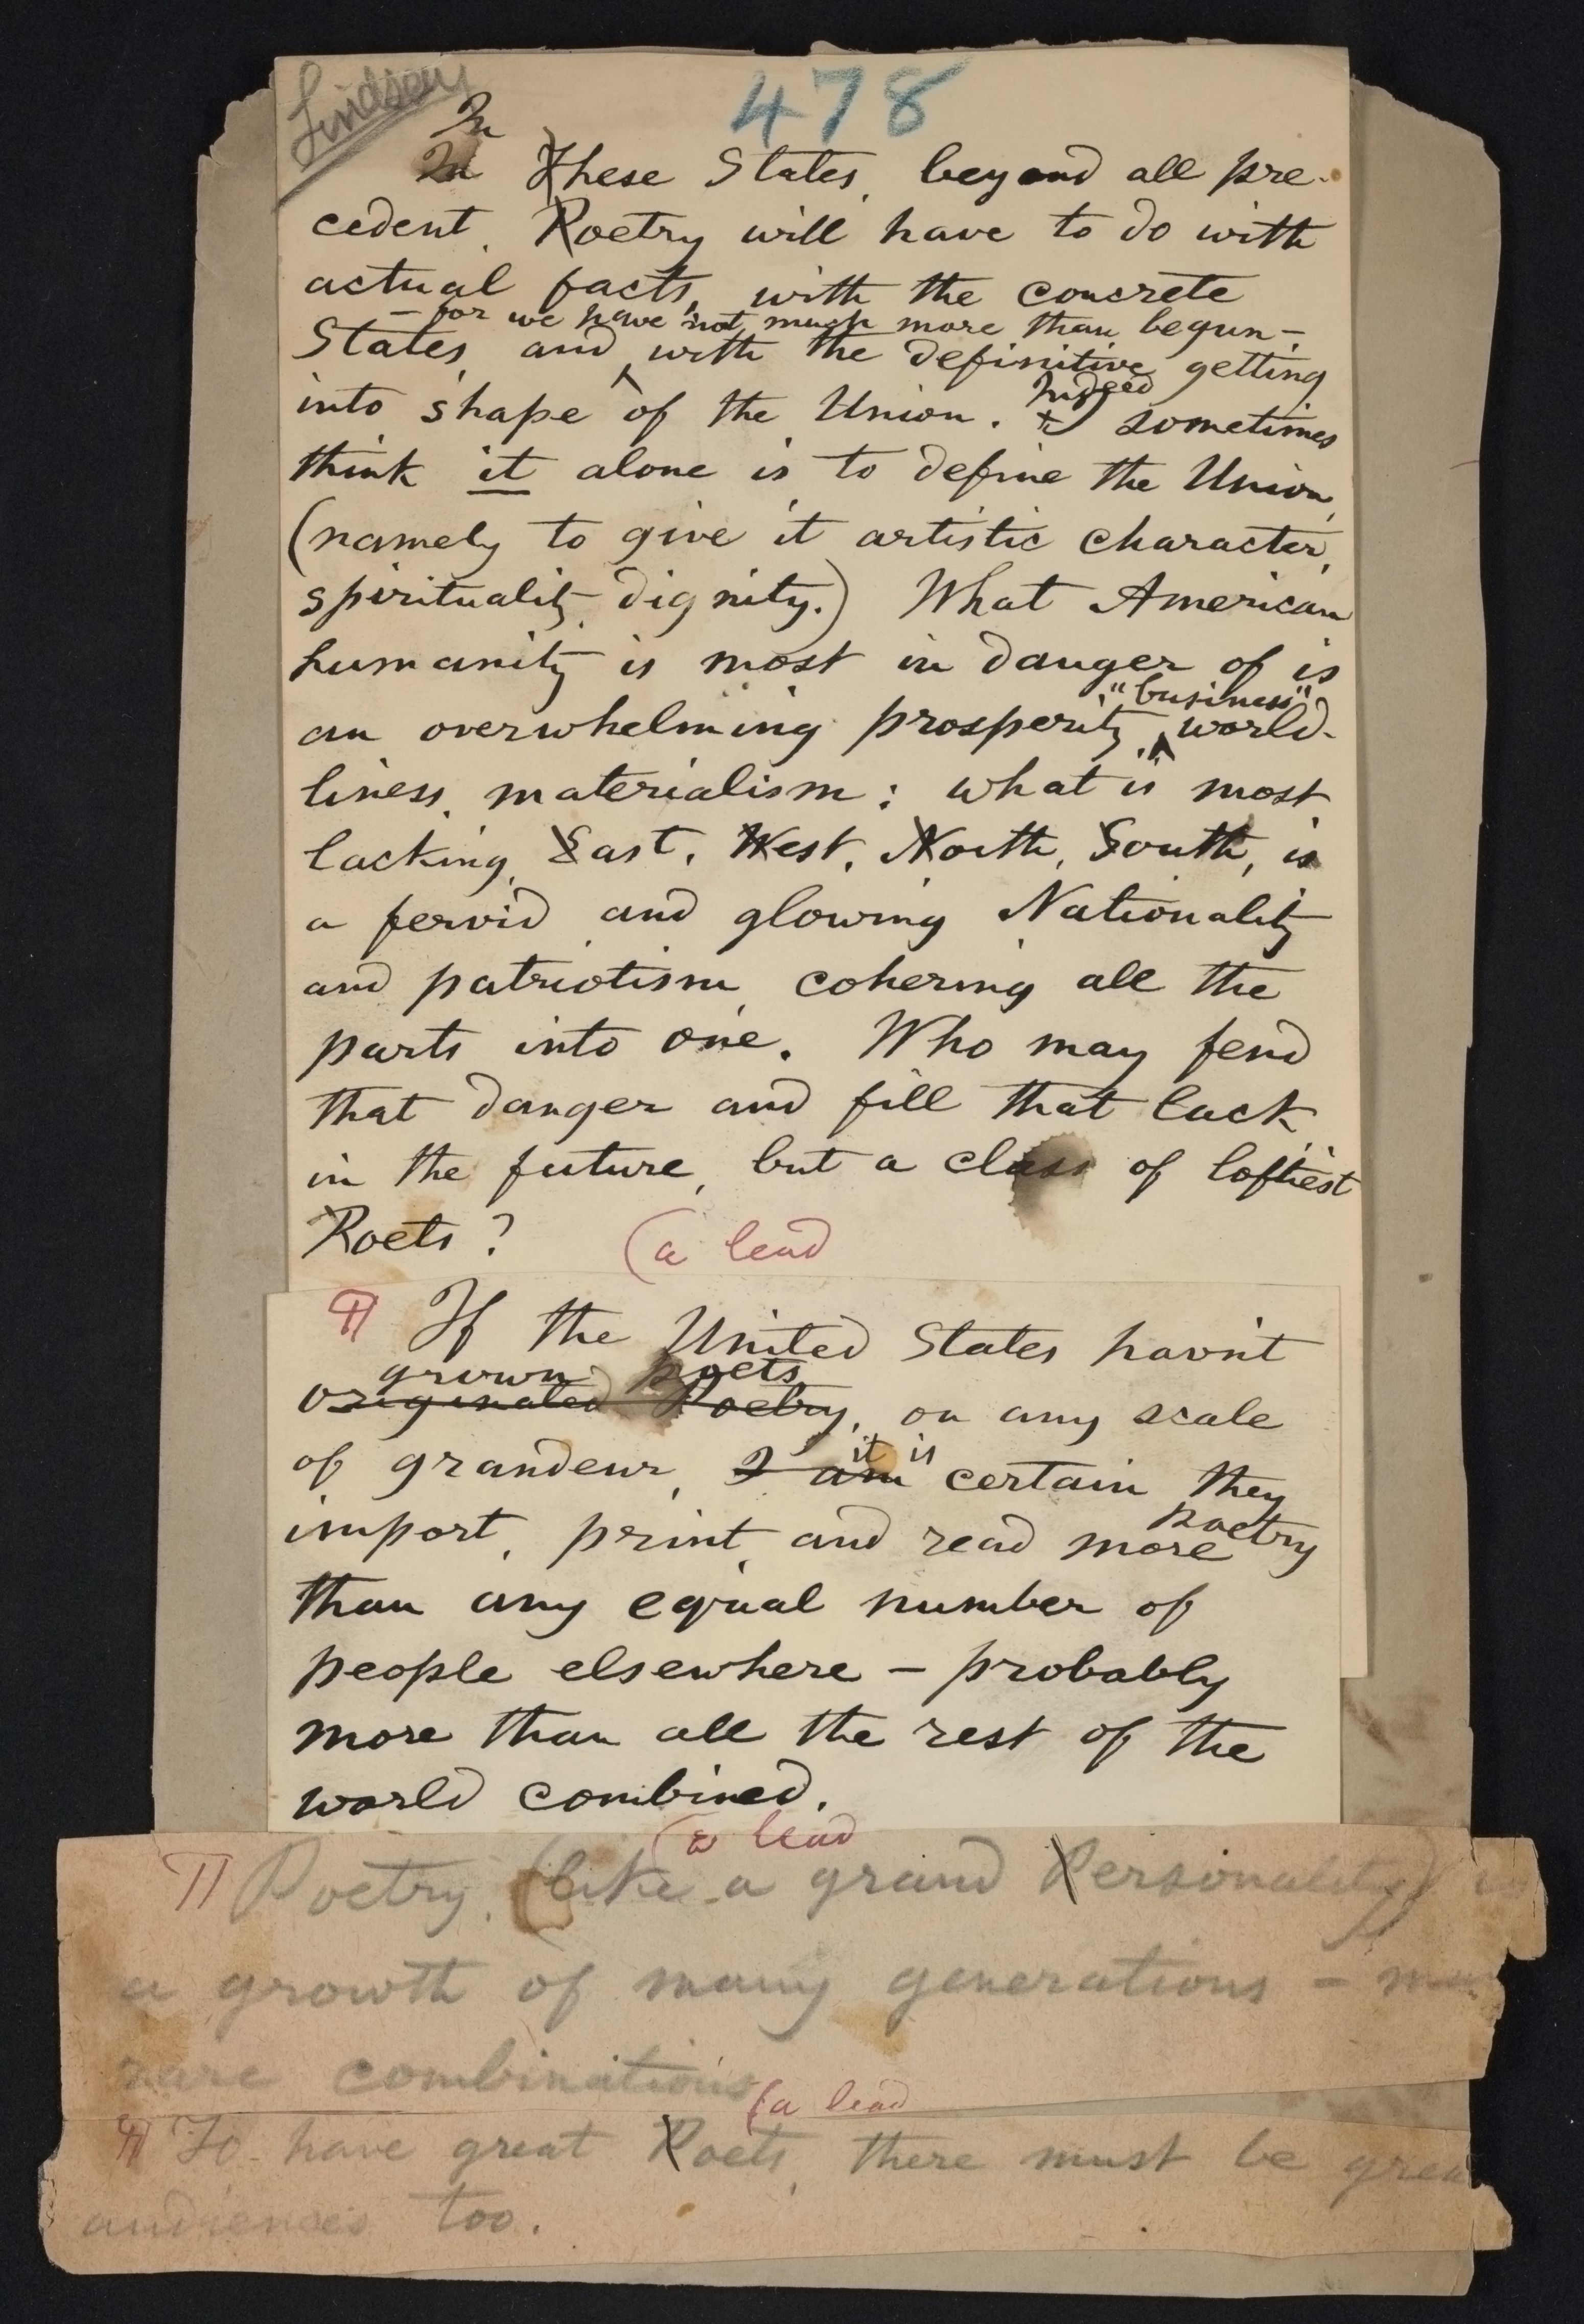 Lindsay
478
In
In These States, beyond all pre-
cedent, Poetry will have to do with
actual facts, with the concrete
– for we have not much more than begun –
States, and with the definitive getting
Indeed
into shape of the Union. I sometimes
think it alone is to define the Union,
(namely to give it artistic character,
spirituality, dignity.) What American
humanity is most in danger of is
"business"
an overwhelming prosperity, world-
liness, materialism: what is most
lacking, East, West, North, South, is
a fervid and glowing Nationality
and patriotism, cohering all the
parts into one. Who may fend
that danger and fill that lack
in the future, but a class of loftiest
Poets?
(a lead
¶ If the United States havn't
grown poets
originated Poetry, on any scale
it is
of grandeur, I am certain they
poetry
import, print, and read more
than any equal number of
people elsewhere – probably
more than all the rest of the
world combined.
(a lead
¶ Poetry, (like a grand Personality) is
a growth of many generations –
rare combinations
(a lead
¶ To have great Poets, there must be grea
audiences too.